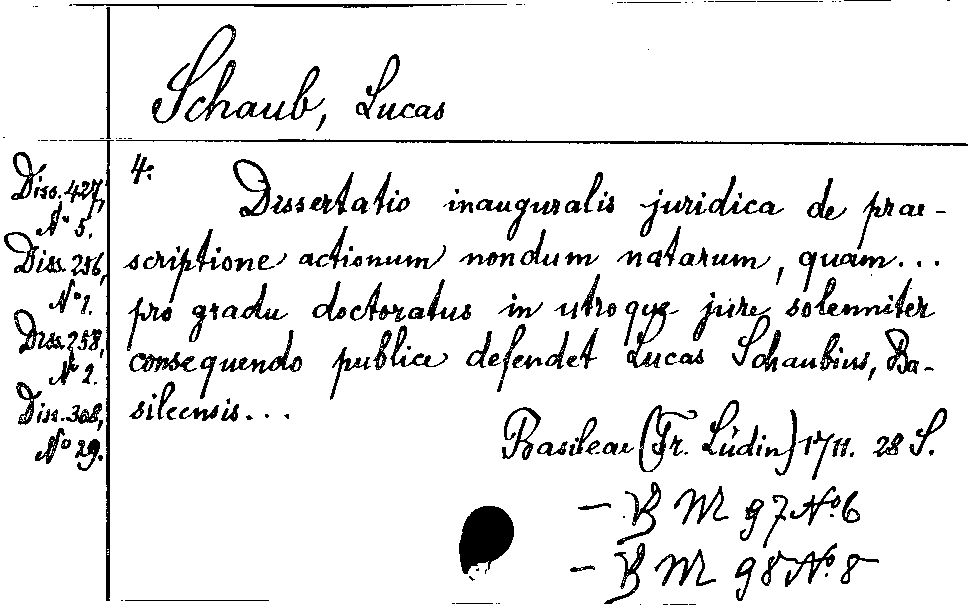 Schaub, Lucas
Diss. 427,
No 5.
Diss. 256,
No 1.
Diss. 258,
No 2.
Diss. 308,
No 29.
4:
Dissertatio inauguralis juridica de prae-
scriptione actionum nondum natarum, quam...
pro gradu doctoratus in utroque jure solenniter
consequendo publice defendet Lucas Schaubius, Ba-
sileensis...
Basileae (Fr. Lüdin) 1711. 28 S.
— B M 97 No. 6
— B M 98 No. 8